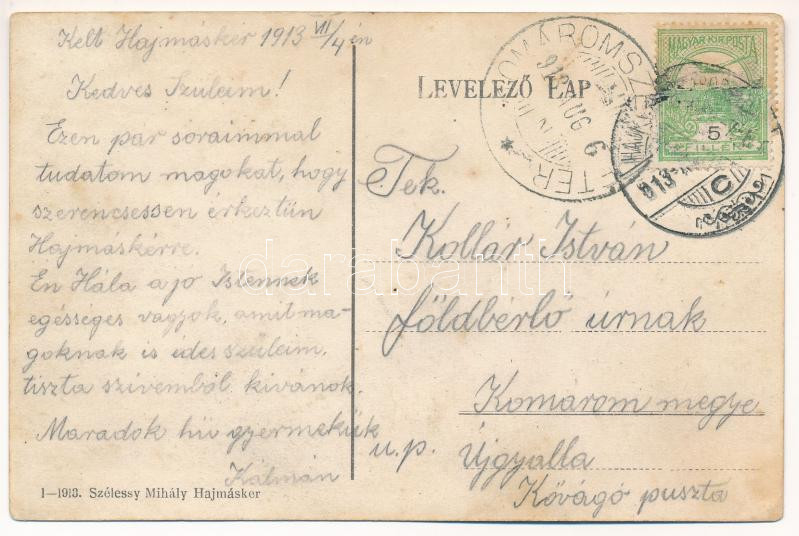 Kelt Hajmáskér 1913 VII/4 én
Kedves Szüleim!
Ezen par soraimmal
tudatom magokat, hogy
szerencsessen érkeztün
Hajmáskérre.
En Hála a jo Istennek
egésséges vagyok, amit ma-
goknak is édes szüleim,
tiszta szívemből kivánok.
Maradok hü gyermekük
Kálmán
1—1913. Szélessy Mihály Hajmásker
LEVELEZŐ LAP
MAGYAR KIR. POSTA
5
FILLÉR
KOMÁROMSZE
TER
913 AUG 6
HAJM
913
C
Tek.
Kollár István
földbérlő úrnak
Komárom megye
u.p. Újgyalla
Kővágó puszta
darabanth